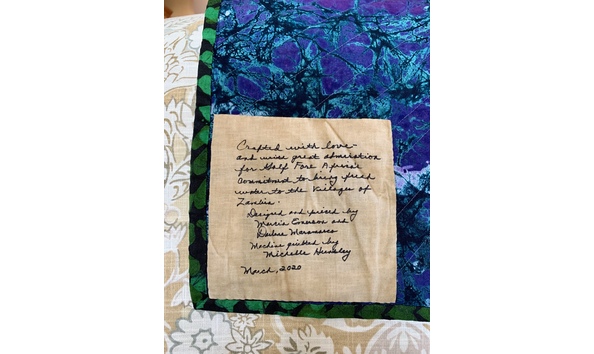 Crafted with love
and with great admiration
for Golf Fore Africa's
Commitment to bring fresh
water to the Villages of
Zambia.
Designed and pieced by
Marcia and
Machine quilted by
Michelle
March, 2020